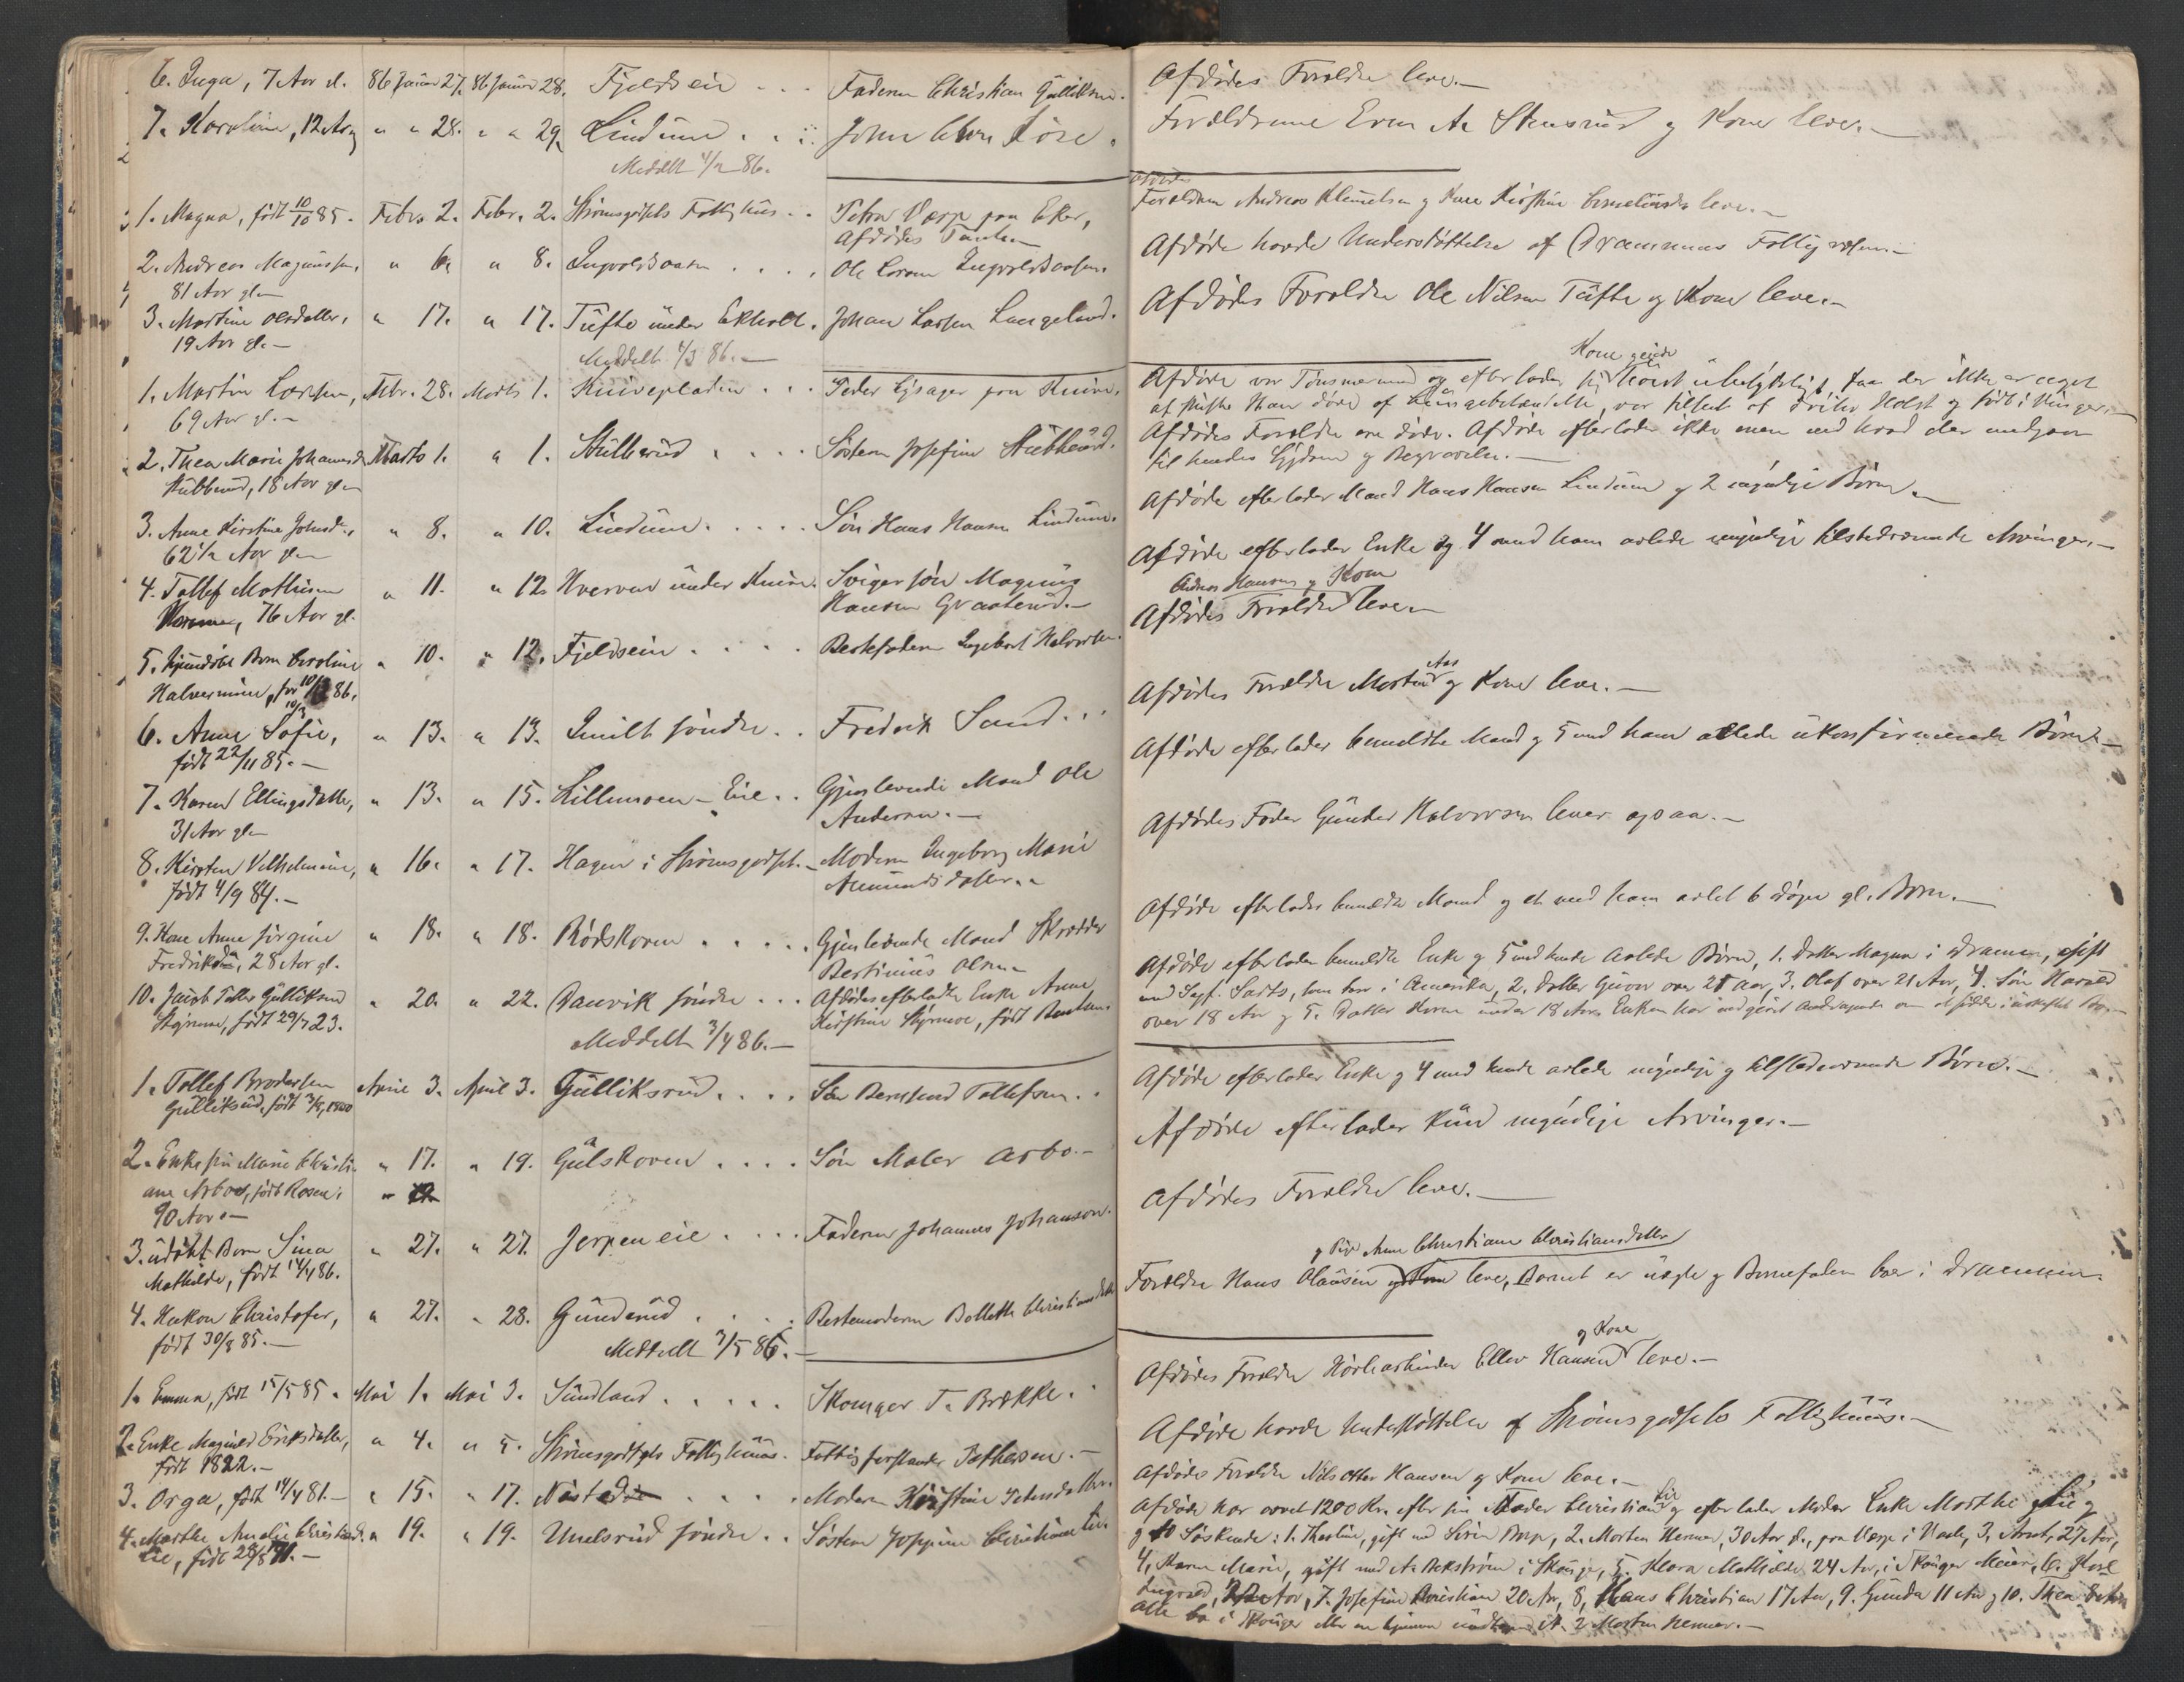 6. Inga, 7 Aar gl. 86 Januar 27. 86 Januar 28. Fjeldseie . . . Faderen Christian Gulliksen.
7. Karoline, 12 Aar " " 28. " " 29. Lindum . . . John Chr.
Meddelt 4/2 86.
1. Magna, født 10/10 85. Febr. 2. Febr. 2. Strømsgodsets Fattighus . . Petra Værp paa Eker,
Afdødes Tante
2. Andreas Magnussen, " 6. " 8. Ingvoldsaasen . . . . Ole Larsen Ingvoldsaasen.
81 Aar gl.
3. Martine Olesdatter, " 17. " 17. Tufte under Ekholt. Johan Larsen Langeland.
19 Aar gl. —
Meddelt 4/3 86. —
1. Martin Larsen, Febr. 28. Marts 1. Knivepladsen . . . Peder paa Knive.
69 Aar gl. —
2. Thea Marie Johannesd. Marts 1. " 1. Stubberud . . . . Søsteren Josefine Stubberud.
Stubberud, 18 Aar gl.
3. Anne Kirstine Johnsd., " 8. " 10. Lindum . . . . Søn Hans Hansen Lindum.
62 1/2 Aar gl.
4. Tollef Mathisen " 11. " 12. Hverven under Knive. Svigersøn Magnus
76 Aar gl. Hansen
5. Hjemdøbt Barn Caroline " 10. " 12. Fjeldseie . . . . Bestefaderen Ingebret Halvorsen.
10/3 86.
6. Anne Sofie, " 13. " 13. søndre . . Fredrik Sand . . .
født 22/11 85. —
7. Karen Ellingsdatter, " 13. " 15. Lillemoen-Eie . . Gjenlevende Mand Ole
31 Aar gl. Andersen. —
8. Kirsten Vilhelmine, " 16. " 17. Hagen i Strømsgodset. Moderen Ingeborg Marie
født 4/9 84. — Amundsdatter. —
9. Kone Anne Jørgine " 18. " 18. Rødskoven . . . . . Gjenlevende Mand Skrædder
28 Aar gl. Bertinius Olsen
10. Jacob Tollef Gulliksen " 20. " 22. Danvik søndre . . . Afdødes efterladte Enke Anne
født 29/7 23. Kirstine født
Meddelt 3/4 86. —
1. Tollef Brodersen April 3. April 3. Gulliksrud . . . . Søn Tollefsen . .
Gulliksrud, født 3/8, 1800
2. Enkefru Marie Christi- " 17. " 19. Gulskoven . . . . Søn Maler Arbo. —
ane Arbo, født Rosen,
90 Aar. —
3. udøbt Barn Sina " 27. " 27. Jerpen eie . . . . Faderen Johannes Johanson.
Mathilde, født 14/4 86.
4. Hakon Christofer, " 27. " 28. Gunderud . . . . Bestemoderen Bolette Christiansdatter
født 30/8 85. —
Meddelt 3/5 86. —
1. Emma, født 15/5 85. Mai 1. Mai 3. Sundland . . . . . Skomager T. Brække . .
2. Enke Magnild Eriksdatter, " 4. " 5. Strømsgodsets Fattighuus. Fattigforstander Pettersen. —
født 1822. —
3. Orga, født 14/4 81. — " 15. " 17. . . . . Moderen Kirstine Petersdatter.
4. Marthe Amalie Christiansd. " 19. " 19. Unelsrud søndre . . Søsteren Josefine Christiansd. Lie.
Lie, født
Afdødes Forældre leve. —
Forældrene Even A. Stensrud og Kone leve. —
Afdødes
Forældre Andreas Klemetsen og Kone Kirstine leve. —
Afdøde havde Understøttelse af Drammens Fattigvæsen. —
Afdødes Forældre Ole Nilsen Tufte og Kone leve. —
Kone
Afdøde var og efterlader sig saa der ikke er noget
at skifte. Han døde af var tilseet af Holst og født i
Afdødes Forældre ere døde. Afdøde efterlader ikke mere end hvad der medgaar
til hendes Sygdom og Begravelse. —
Afdøde efterlader Mand Hans Hansen Lindum og 2 myndige Børn. —
Afdøde efterlader Enke og 4 med ham avlede myndige tilstedeværende Arvinger. —
Andreas Hansen og Kone
Afdødes Forældre leve. —
Aas
Afdødes Forældre Martin og Kone leve. —
Afdøde efterlader bemeldte Mand og 5 med ham avlede ukonfirmerede Børn. —
Afdødes Fader Gunder Halvorsen lever ogsaa. —
Afdøde efterlader bemeldte Mand og et med ham avlet 6 Dage gl. Barn. —
Afdøde efterlader bemeldte Enke og 5 med hende avlede Børn, 1. Datter Magna i Drammen, gift
med i Amerika, 2. Datter over 21 Aar, 3. Olaf over 21 Aar, 4. Søn Harald
over 18 Aar og 5. Datter under 18 Aar. Enken har indgivet Andragende om at sidde i uskiftet Bo. —
Afdøde efterlader Enke og 4 med hende avlede myndige og tilstedeværende Børn. —
Afdøde efterlader kun myndige Arvinger. —
Afdødes Forældre leve. —
og Pige Anne Christiane Christiansdatter
Forældre Hans Olausen og leve, Barnet er uægte og Barnefaderen bor i Drammen.
og Kone
Afdødes Forældre Ellev Hansen leve. —
Afdøde havde Understøttelse af Strømsgodsets Fattighuus. —
Afdødes Forældre Nils Otter Hansen og Kone leve. —
Lie
Afdøde har arvet 1200 Kr. efter sin Fader Christian og efterlader Moder Enke Marthe Lie og
10 Søskende: 1. gift med 2. Morten Henner, 30 Aar gl., paa 3. 27 Aar,
4, Karen Marie, gift med A. i Skouger, 5. Klara Mathilde 24 Aar, i Skouger 6. Karl
7. Josefine Christiane 20 Aar, 8, Hans Christian 17 Aar, 9. Gunda 11 Aar og 10. Thea
alle bo i Skouger eller ere hjemme undtagen 2 Morten Henner. —